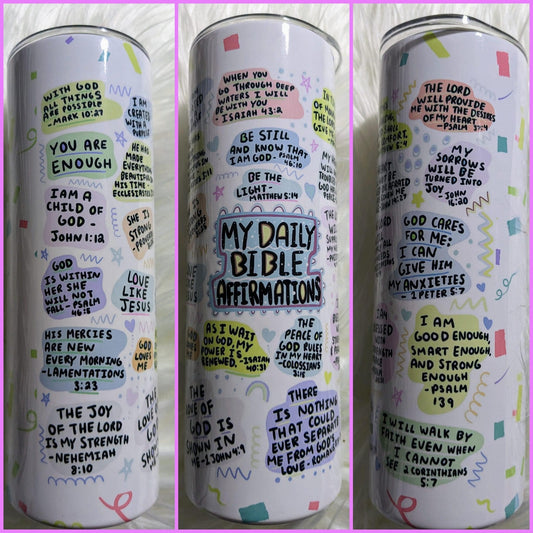 WITH GOD
ALL THINGS
ARE POSSIBLE
- MARK 10:27
I AM
CREATED
WITH A
PURPOSE
YOU ARE
ENOUGH
HE HAS
MADE
EVERYTHING
BEAUTIFUL
HIS TIME -
ECCLESIASTES
I AM A
CHILD OF
GOD -
JOHN 1:12
SHE IS
STRONG
GOD
IS WITHIN
HER SHE
WILL NOT
FALL - PSALM
46:5
LOVE
LIKE
JESUS
HIS MERCIES
ARE NEW
EVERY MORNING
- LAMENTATIONS
3:23
GOD
LOVES
ME
THE JOY
OF THE LORD
IS MY STRENGTH
- NEHEMIAH
8:10
THE
LOVE
GOD
SHOW
WHEN YOU
GO THROUGH DEEP
WATERS I WILL
BE WITH YOU
- ISAIAH 43:2
BE STILL
AND KNOW THAT
I AM GOD - PSALM
46:10
BE THE
LIGHT -
MATTHEW 5:14
MY DAILY
BIBLE
AFFIRMATIONS
AS I WAIT
ON GOD, MY
POWER IS
RENEWED. - ISAIAH
40:31
THE
PEACE OF
GOD RULES
IN MY HEART
- COLOSSIANS
3:15
THE
LOVE OF
GOD IS
SHOWN IN
ME - 1 JOHN 4:9
THERE
IS NOTHING
THAT COULD
EVER SEPARATE
ME FROM GOD'S
LOVE - ROMANS
THE LORD
WILL PROVIDE
ME WITH THE DESIRES
OF MY HEART
- PSALM 37:4
MY
SORROWS
WILL BE
TURNED INTO
JOY JOHN
16:20
GOD CARES
FOR ME:
I CAN
GIVE HIM
MY ANXIETIES
- 1 PETER 5:7
I AM
GOOD ENOUGH,
SMART ENOUGH,
AND STRONG
ENOUGH
- PSALM
139
I WILL WALK BY
FAITH EVEN WHEN
I CANNOT
SEE 2 CORINTHIANS
5:7